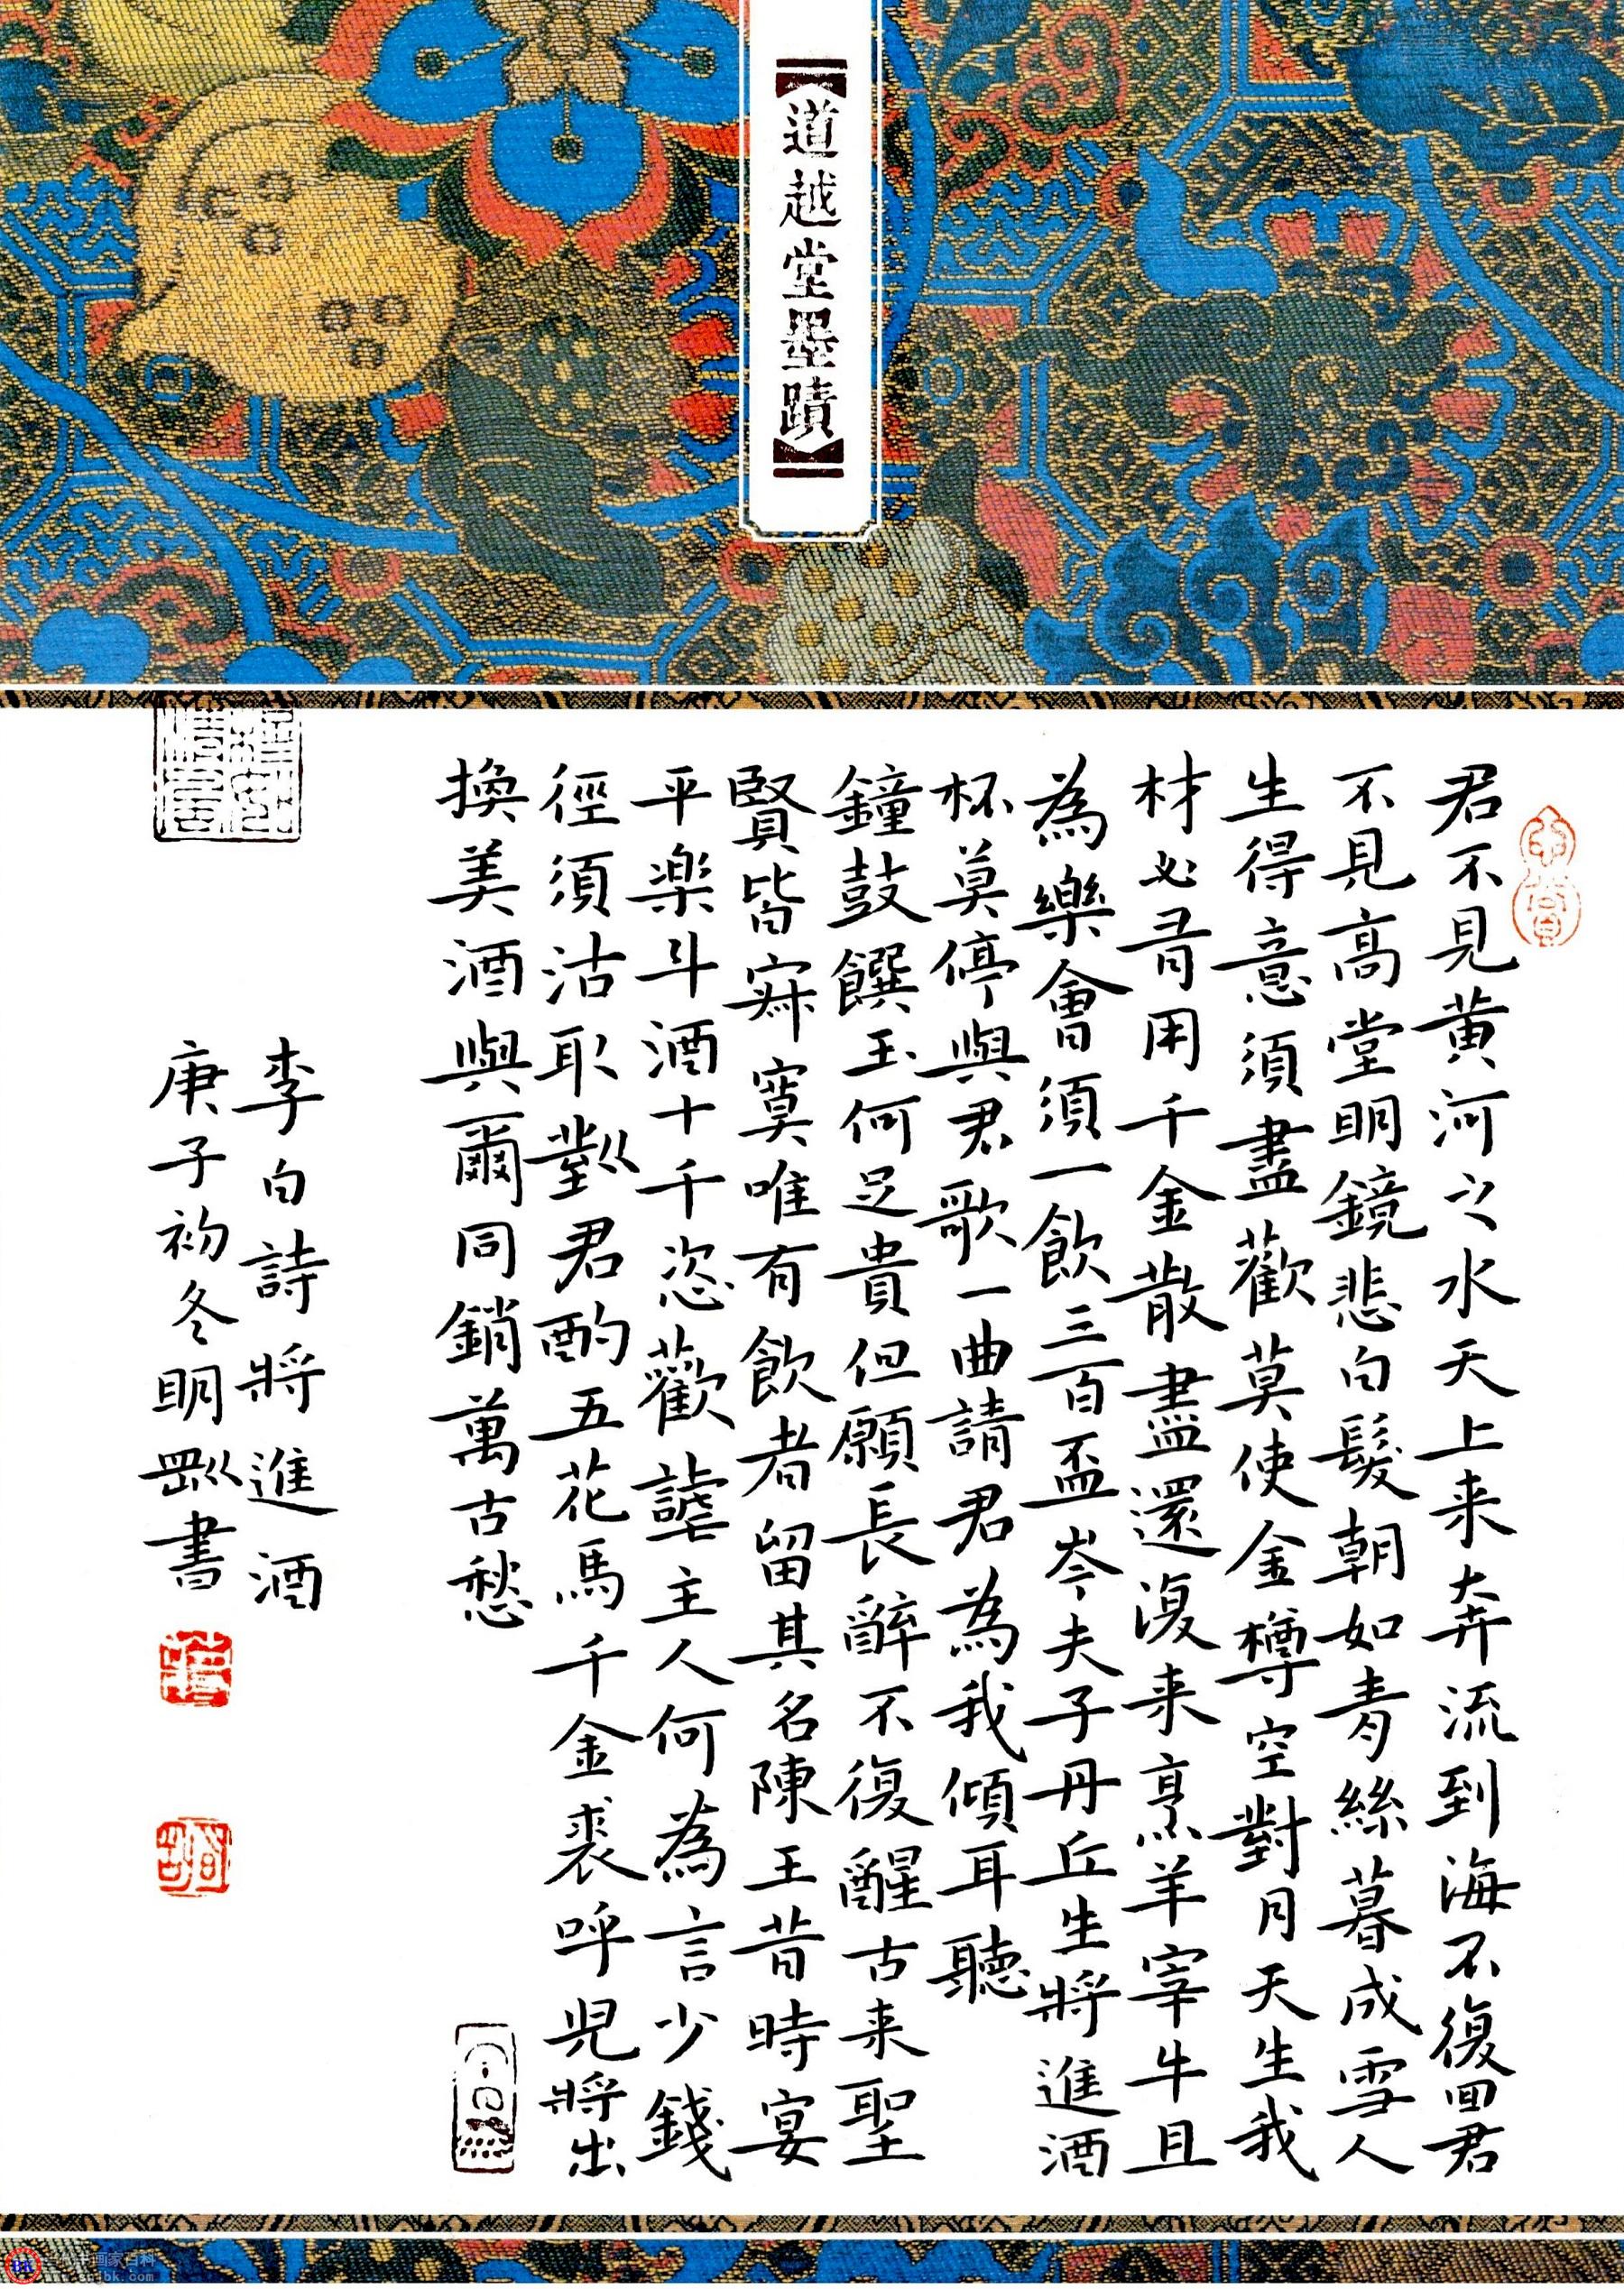 【道越堂墨蹟】
君不見黄河之水天上来奔流到海不復回君
不見高堂明鏡悲白髮朝如青絲暮成雪人
生得意須盡歡莫使金樽空對月天生我
材必有用千金散盡還復来烹羊宰牛且
為樂會須一飲三百盃岑夫子丹丘生將進酒
杯莫停與君歌一曲請君為我傾耳聽
鐘鼓饌玉何足貴但願長醉不復醒古来聖
賢皆寂寞唯有飲者留其名陳王昔時宴
平楽斗酒十千恣歡謔主人何為言少錢
徑須沽取對君酌五花馬千金裘呼児將出
換美酒與爾同銷萬古愁
李白詩將進酒
庚子初冬明書